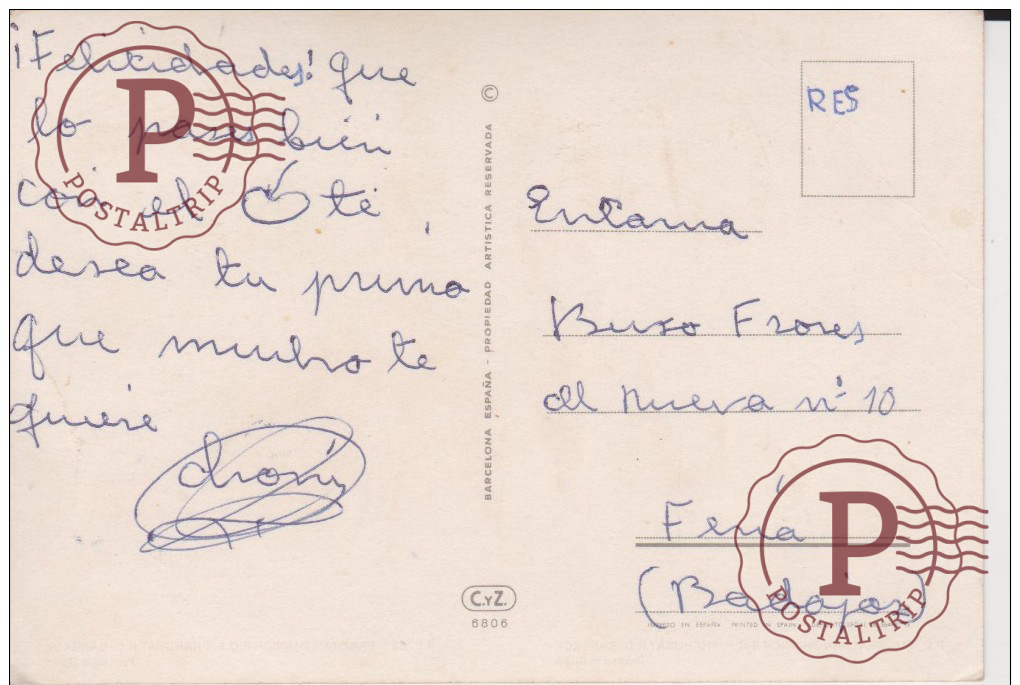 ¡Felicidades! que
lo pases bien
con el te
desea tu primo
que mucho te
quiere
©
BARCELONA ESPAÑA - PROPIEDAD ARTISTICA RESERVADA
C.YZ.
6806
RES
Entama
Buso Frores
al nueva nº 10
Feria
(Badajoz)
IMPRESO EN ESPAÑA PRINTED IN SPAIN
P
POSTALTRIP
P
POSTALTRIP